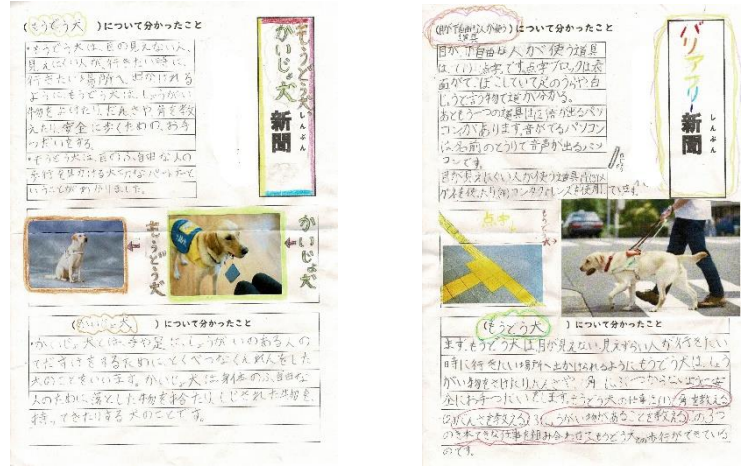 (もうどう犬)について分かったこと
・もうどう犬は、目の見えない人、
見えにくい人が行きたい時に、
行きたい場所へ出かけられる
ようにもうどう犬は、しょうがい
物をよけたり、だんさや角を教
えたり、安全に歩くための、お手
つだいをする。
・もうどう犬は、目のふ自由な人の
歩行を助ける大てなパートナーと
いうことがわかりました。
もうどう犬
かいじょ犬
新聞
しんぶん
もうどう犬
かいじょ犬
(かいじょ犬)について分かったこと
・かいじょ犬とは、手や足に、しょうがいのある人の
てだすけをするために、とくべつなくんれんをした
犬のことをいいます。かいじょ犬は、身体のふ自由な
人のために、落とした物を拾たり、しじされた物を
持ってきたりする犬のことです。
(目が不自由な人が使う道具)について分かったこと
目が不自由な人が使う道具
は、(1)点字です。点字ブロックは表
面がでこぼこしていて足のうらや白
じょうで道が分かる。
あともう一つの道具は音声が出るパソ
コンがあります。音がでるパソコン
は名前のとうりで音声が出るパソ
コンです。
目が見えにくい人が使う道具は
メガネを使ったり コンタクトレンズを使用しています。
バリアフリー
新聞
しんぶん
点字
もうどう犬
(もうどう犬)について分かったこと
まず、もうどう犬は目が見えない、見えずらい人が行きたい
時に行きたい場所へ出かけられるようにもうどう犬は、しょう
がい物をさけたりだんさや、角にぶつからないように安
全にお手つだいをします。もうどう犬の仕事は(1)角を教える
(2)だんさを教える(3)しょうがい物があることを教えるの3つ
の仕事を組み合わせてもうどう犬の歩行ができている
のです。